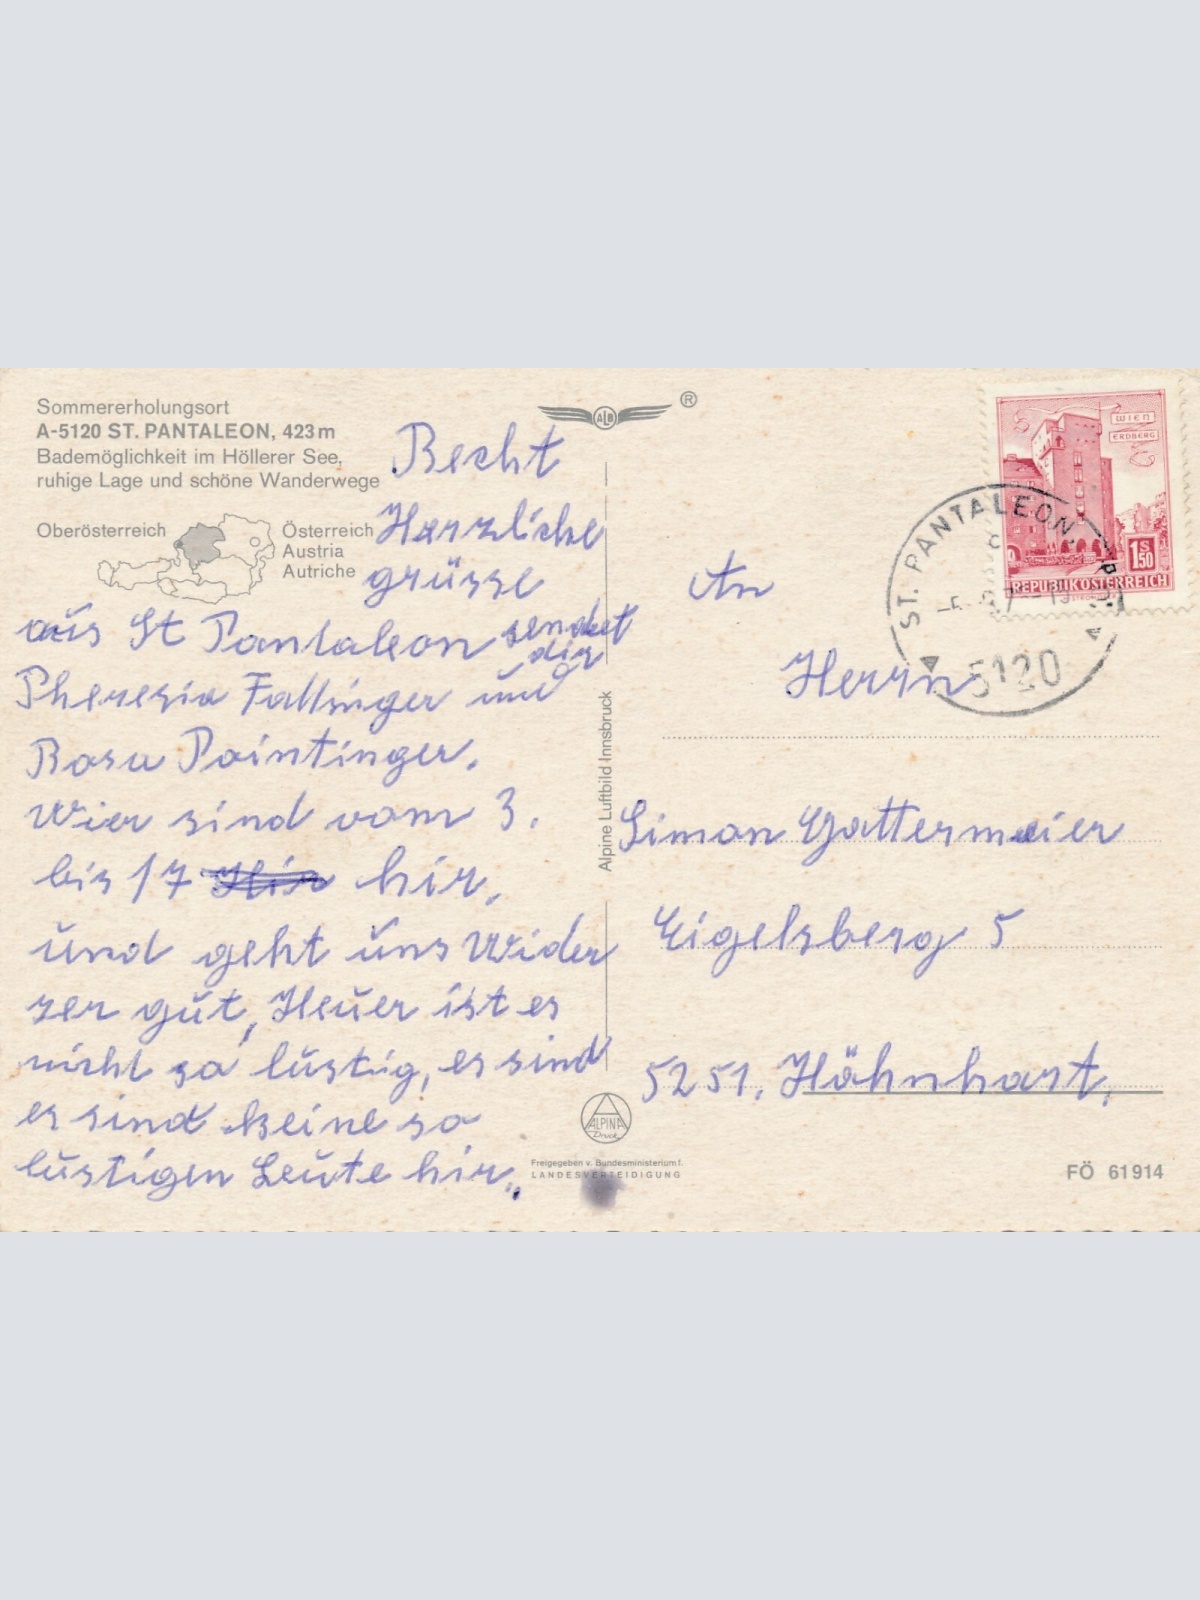 Sommererholungsort
A-5120 ST. PANTALEON, 423 m
Bademöglichkeit im Höllerer See,
ruhige Lage und schöne Wanderwege
Oberösterreich
Österreich
Austria
Autriche
Recht
Herzliche
grüsse
aus St Pantaleon sendet
dir
Theresia Fallinger und
Rosa Paintinger.
Wier sind vom 3.
bis 17 hir.
und geht uns Wider
ser gut, Heuer ist es
nicht so lustig, es sind
es sind keine so
lustigen Leute hir.
ALB
®
Alpine Luftbild Innsbruck
ALPINA
Druck
Freigegeben v. Bundesministerium f.
LANDESVERTEIDIGUNG
WIEN
ERDBERG
1 S 50
REPUBLIK ÖSTERREICH
ST. PANTALEON,
5120
An
Herrn
Simon Gattermaier
Eigelsberg 5
5251, Höhnhart,
FÖ 61 914